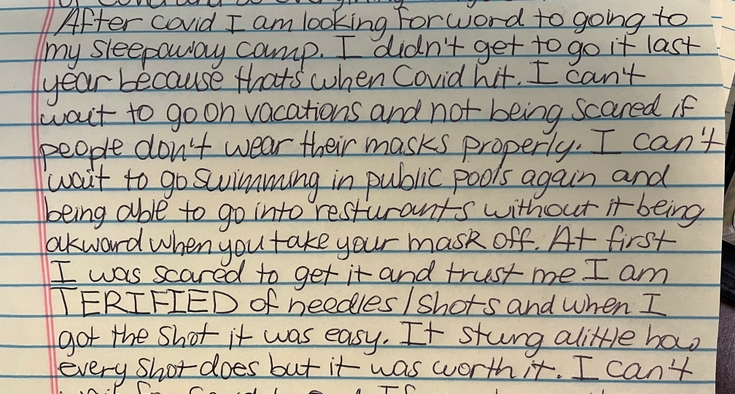 After covid I am looking forword to going to
my sleepaway camp. I didn't get to go it last
year because thats when Covid hit. I can't
wait to go on vacations and not being scared if
people don't wear their masks properly. I can't
wait to go swimming in public pools again and
being able to go into resturants without it being
akward when you take your mask off. At first
I was scared to get it and trust me I am
TERIFIED of needles/shots and when I
got the shot it was easy. It stung alittle how
every shot does but it was worth it. I can't